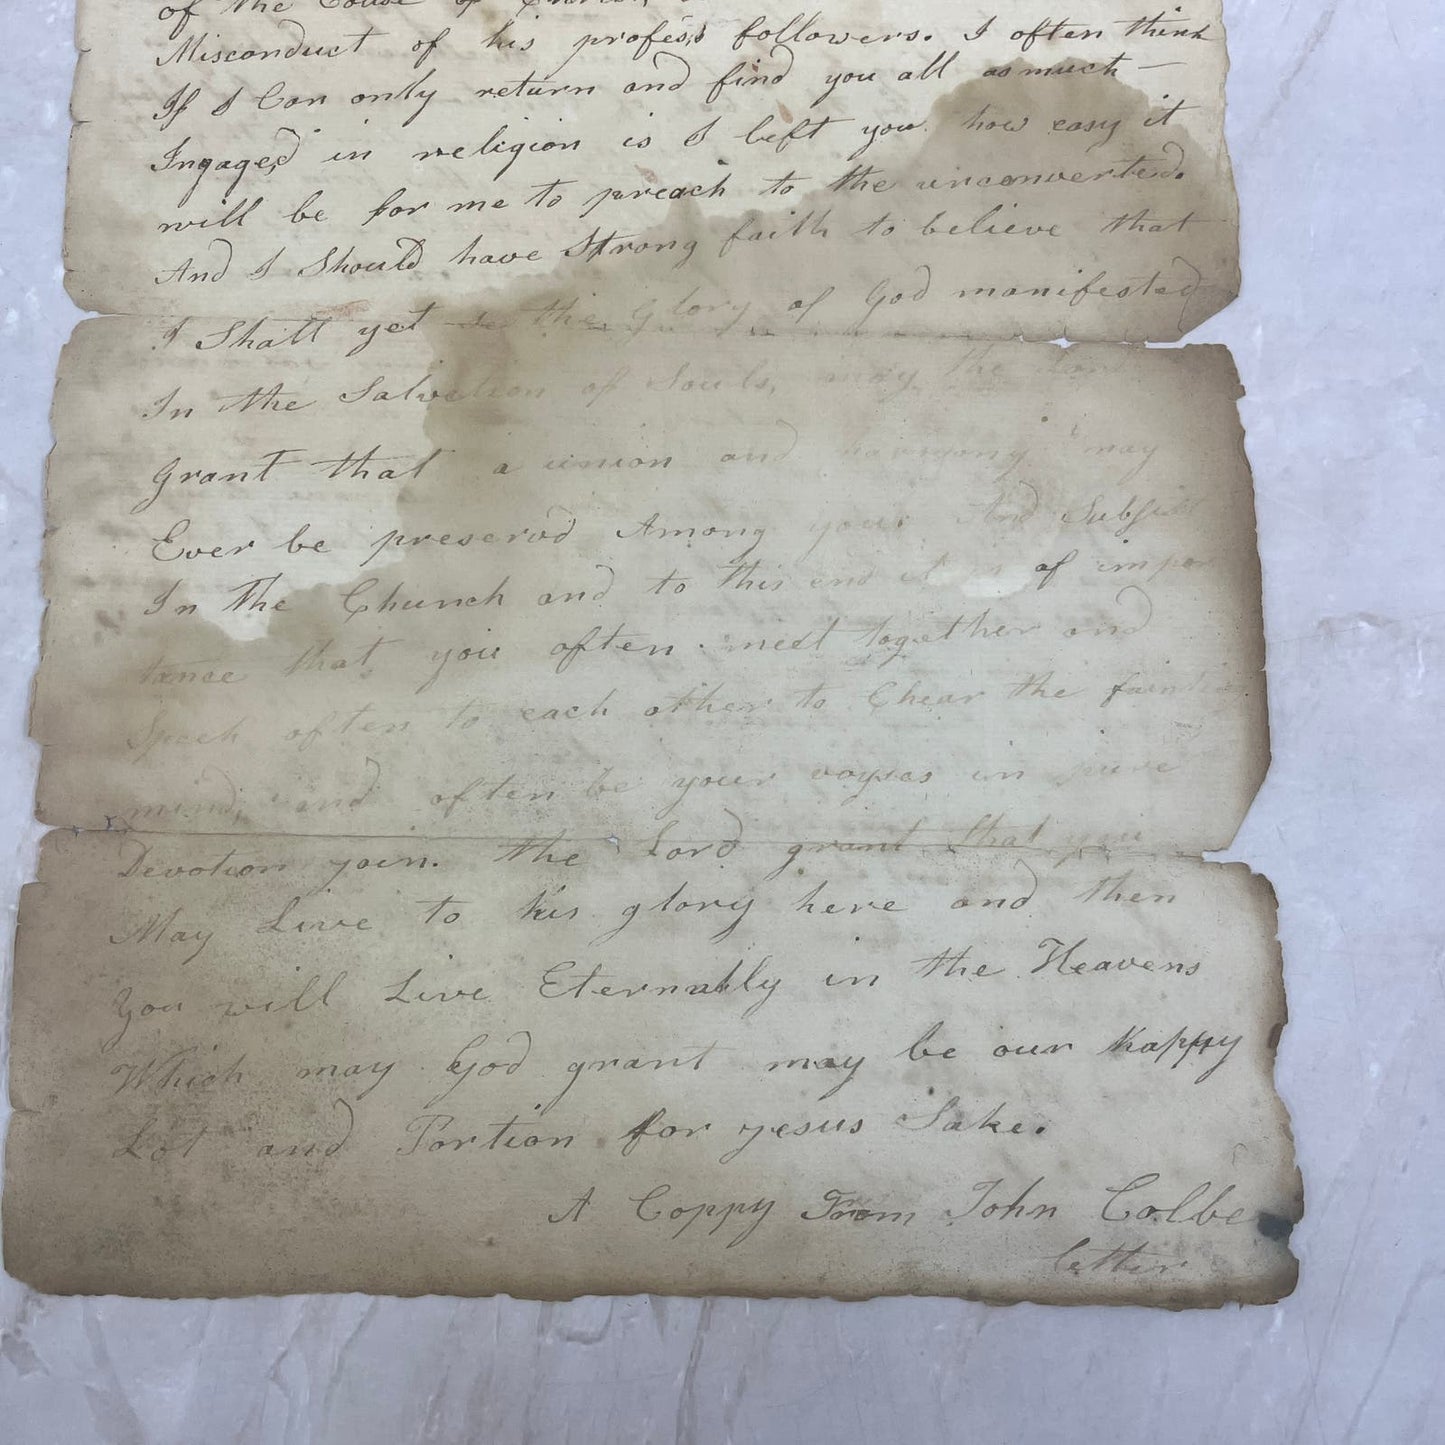 of the Couse of Christ,
Misconduct of his profess followers. I often think
If I Can only return and find you all as much —
Ingaged in religion is I left you how easy it
will be for me to preach to the unconverted.
And I Should have Strong faith to believe that
I Shall yet se the glory of God manifested
In the Salvation of Souls, may the
Grant that a union and harmony may
Ever be preservd Among your And Subsist
In The Church and to this end it is of impor
tance that you often meet together and
Speek often to each other to Chear the
mind, and often be your voyses in pure
Devotion join. the Lord grant that you
May Live to his glory here and then
You will Live Eternally in the Heavens
Which may God grant may be our Happy
Lot and Portion for yesus Sake.
A Coppy From John Colbe
letter